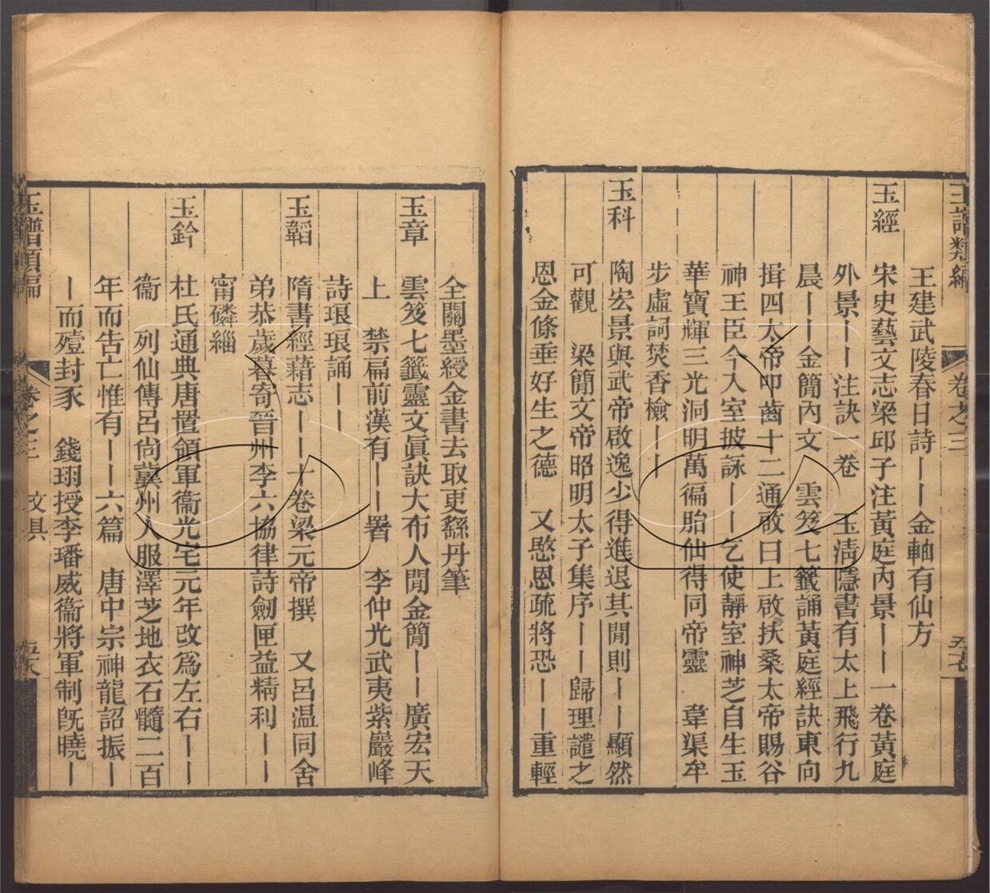 玉譜類編
卷之三
王建武陵春日詩〡〡金軸有仙方
玉經
宋史藝文志梁邱子注黃庭內景〡〡一卷黃庭
外景〡〡注訣一卷 玉清隱書有太上飛行九
晨〡〡金簡內文 雲笈七籤誦黃庭經訣東向
揖四太帝叩齒十二通啟曰上啟扶桑太帝賜谷
神王臣今入室披詠〡〡乞使靜室神芝自生玉
華寶輝三光洞明萬徧胎仙得同帝靈 韋渠牟
步虛詞焚香檢〡〡
玉科
陶宏景與武帝啟逸少得進退其閒則〡〡顯然
可觀 梁簡文帝昭明太子集序〡〡歸理譴之
恩金條垂好生之德 又愍恩疏將恐〡〡重輕
全關墨綬金書去取更繇丹筆
玉章
雲笈七籤靈文眞訣大布人閒金簡〡〡廣宏天
上 禁扁前漢有〡〡署 李仲光武夷紫巖峰
詩琅琅誦〡〡
玉韜
隋書經藉志〡〡十卷梁元帝撰 又呂温同舍
弟恭歲暮寄晉州李六協律詩劒匣益精利〡〡
甯磷緇
玉鈐
杜氏通典唐置領軍衞光宅元年改爲左右〡〡
衞 列仙傳呂尙冀州人服澤芝地衣石髓二百
年而告亡惟有〡〡六篇 唐中宗神龍詔振〡
〡而殪封豕 錢珝授李璠威衞將軍制旣曉〡
玉譜類編
卷之三 文具